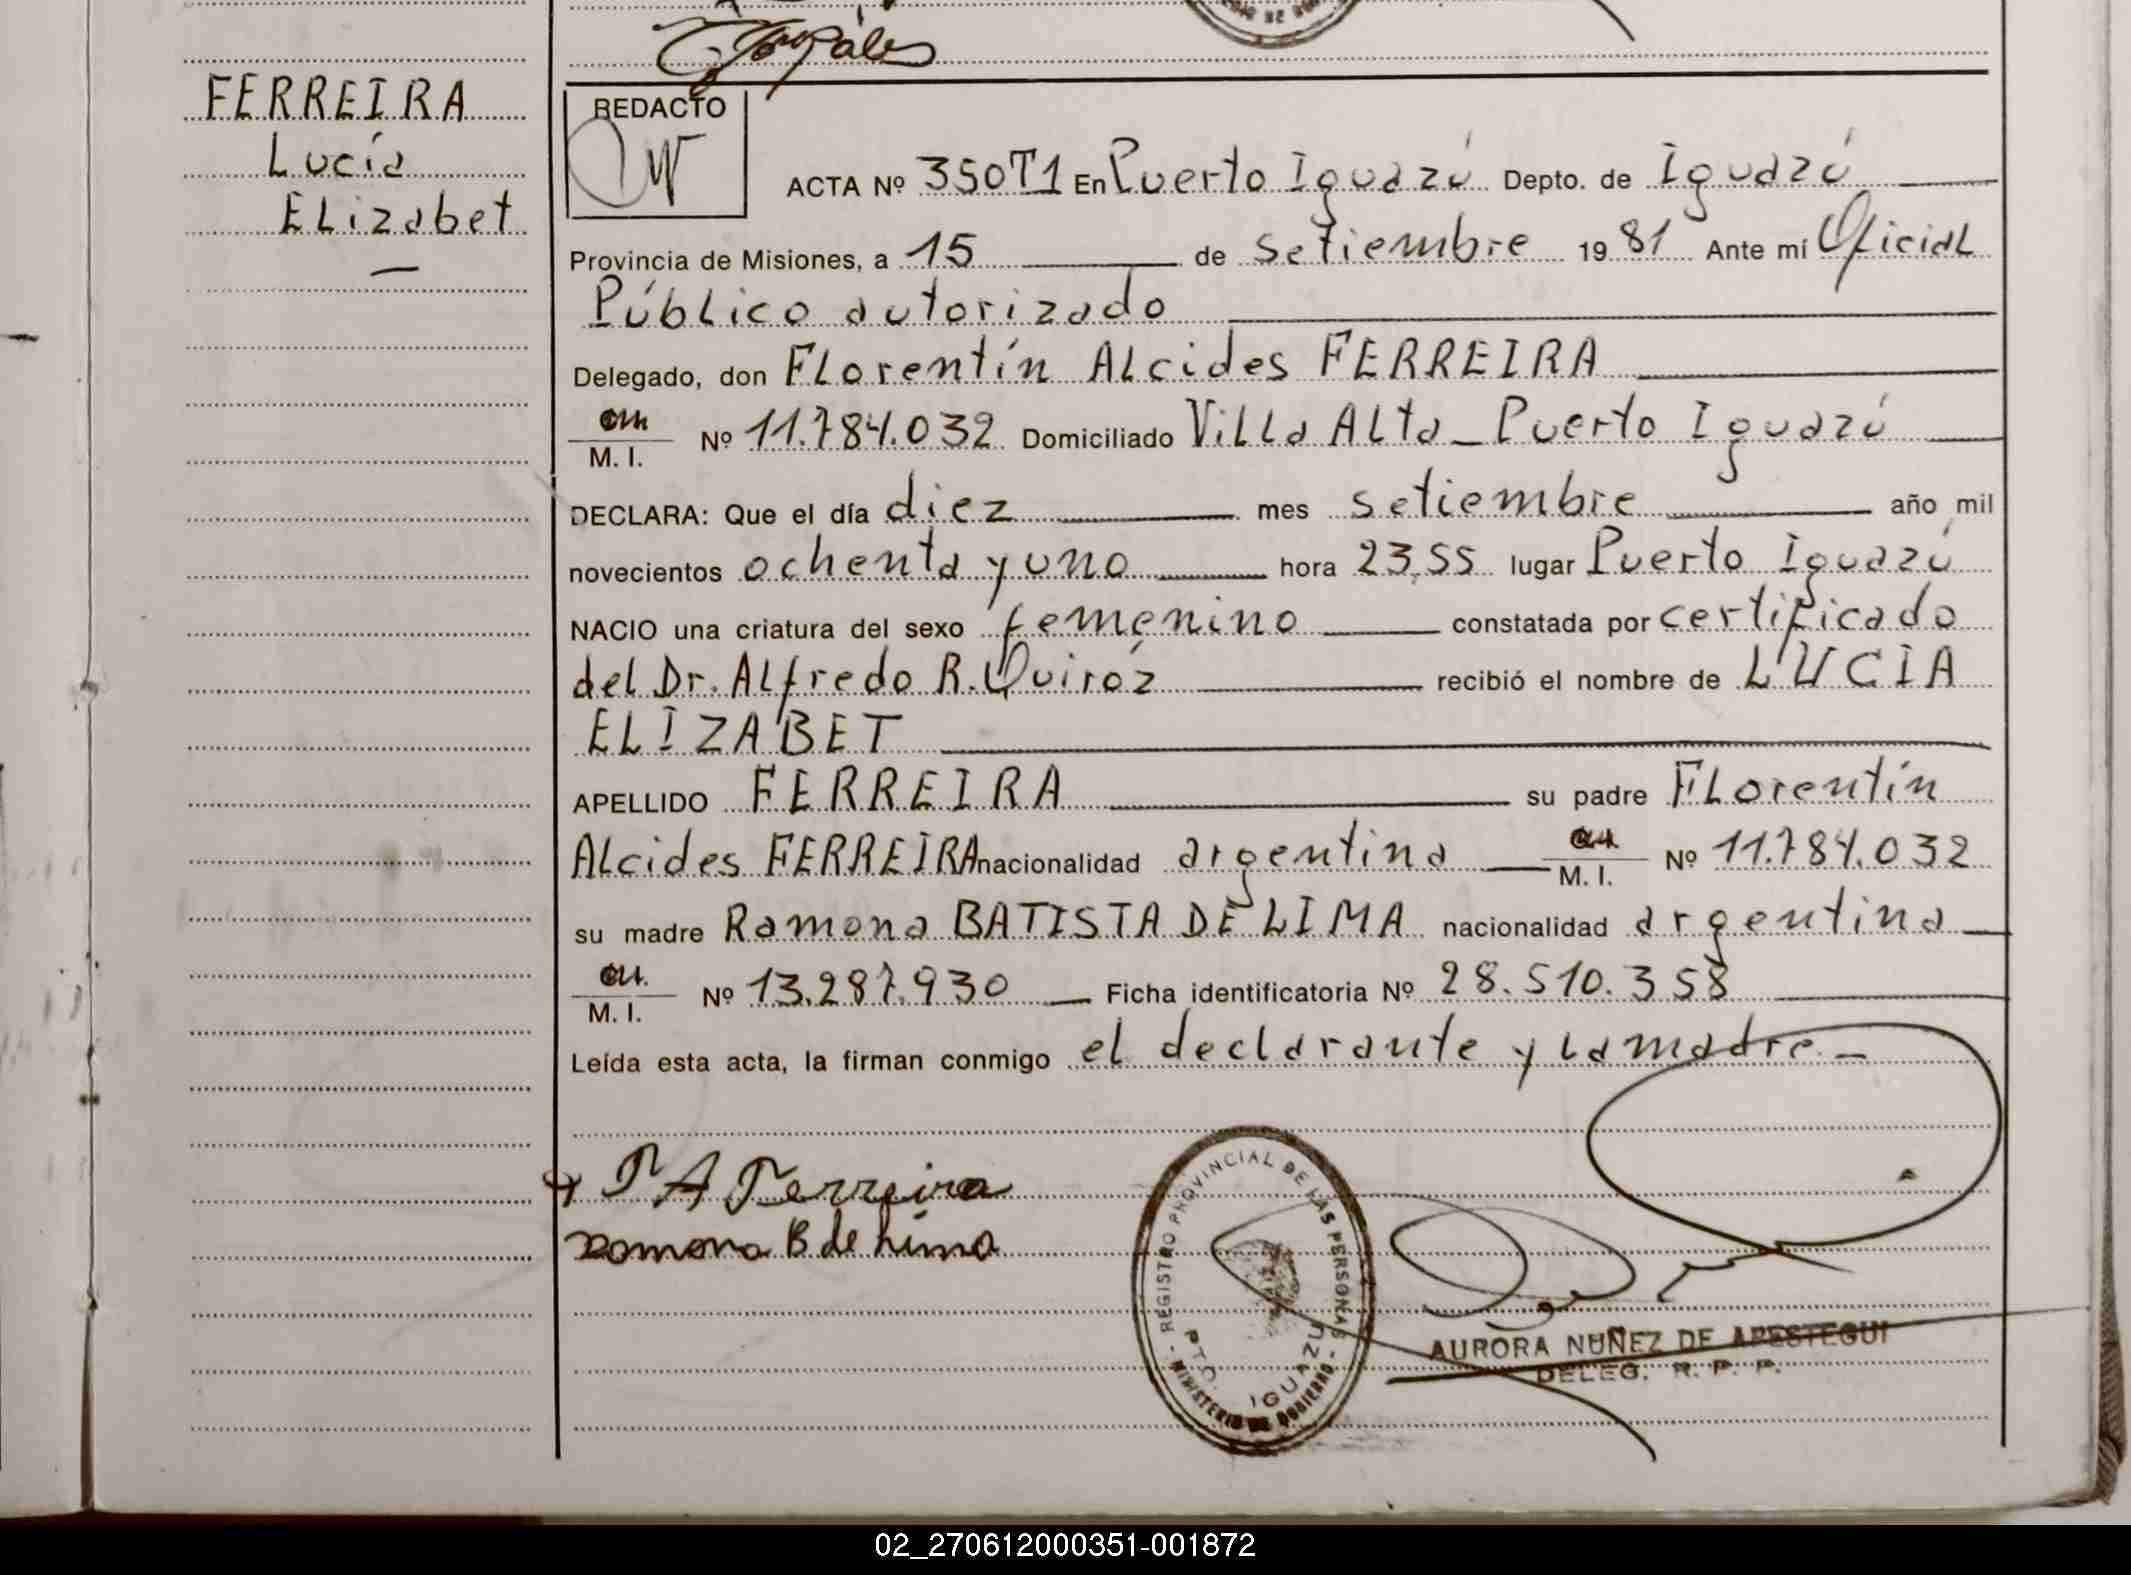 Gonzáles
FERREIRA
Lucía
ELizabet
REDACTO
ACTA Nº 350T1 En Puerto Iguazú Depto. de Iguazú
Provincia de Misiones, a 15 de setiembre 1981 Ante mí Oficial
Público autorizado
Delegado, don Florentín Alcides FERREIRA
M. I. Nº 11.784.032 Domiciliado Villa Alta - Puerto Iguazú
DECLARA: Que el día diez mes setiembre año mil
novecientos ochenta y uno hora 23,55 lugar Puerto Iguazú
NACIO una criatura del sexo femenino constatada por certificado
del Dr. Alfredo R. Quiróz recibió el nombre de LUCÍA
ELIZABET
APELLIDO FERREIRA su padre Florentín
Alcides FERREIRA nacionalidad argentina M. I. Nº 11.784.032
su madre Ramona BATISTA DE LIMA nacionalidad argentina
M. I. Nº 13.287.930 Ficha identificatoria Nº 28.510.358
Leída esta acta, la firman conmigo el declarante y la madre.-
F A Ferreira
Ramona B de Lima
REGISTRO PROVINCIAL DE LAS PERSONAS
PTO. IGUAZU
MINISTERIO DE GOBIERNO
AURORA NUÑEZ DE APESTEGUI
DELEG. R. P. P.
02_270612000351-001872